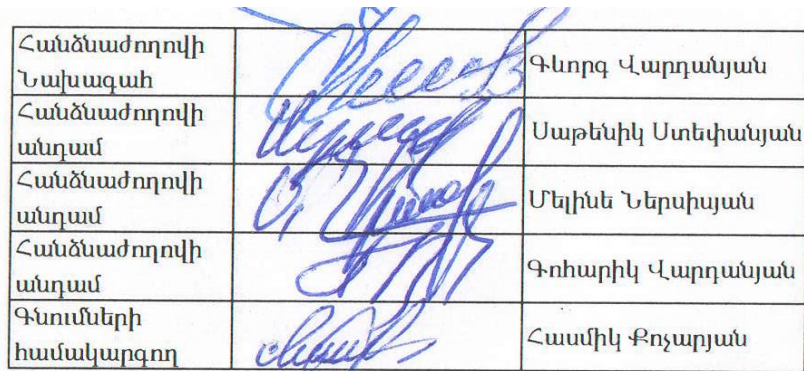 Հանձնաժողովի
Նախագահ
Գևորգ Վարդանյան
Հանձնաժողովի
անդամ
Սաթենիկ Ստեփանյան
Հանձնաժողովի
անդամ
Մելինե Ներսիսյան
Հանձնաժողովի
անդամ
Գոհարիկ Վարդանյան
Գնումների
համակարգող
Հասմիկ Քոչարյան